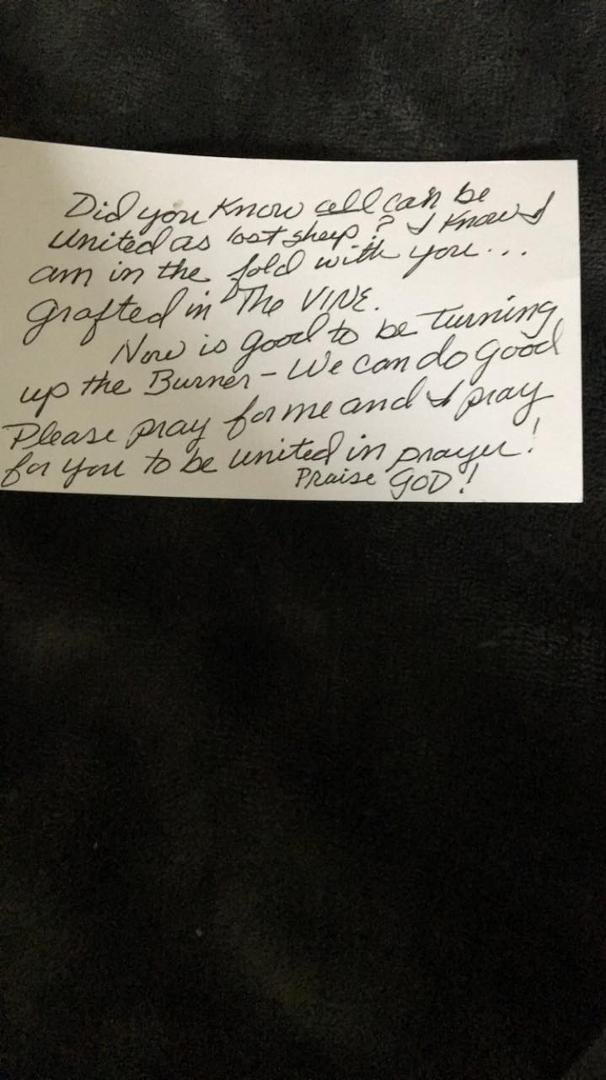 Did you know all can be
united as lost sheep? I know I
am in the fold with you...
grafted in The VINE.
Now is good to be turning
up the Burner - We can do good
Please pray for me and I pray
for you to be united in prayer!
Praise GOD!